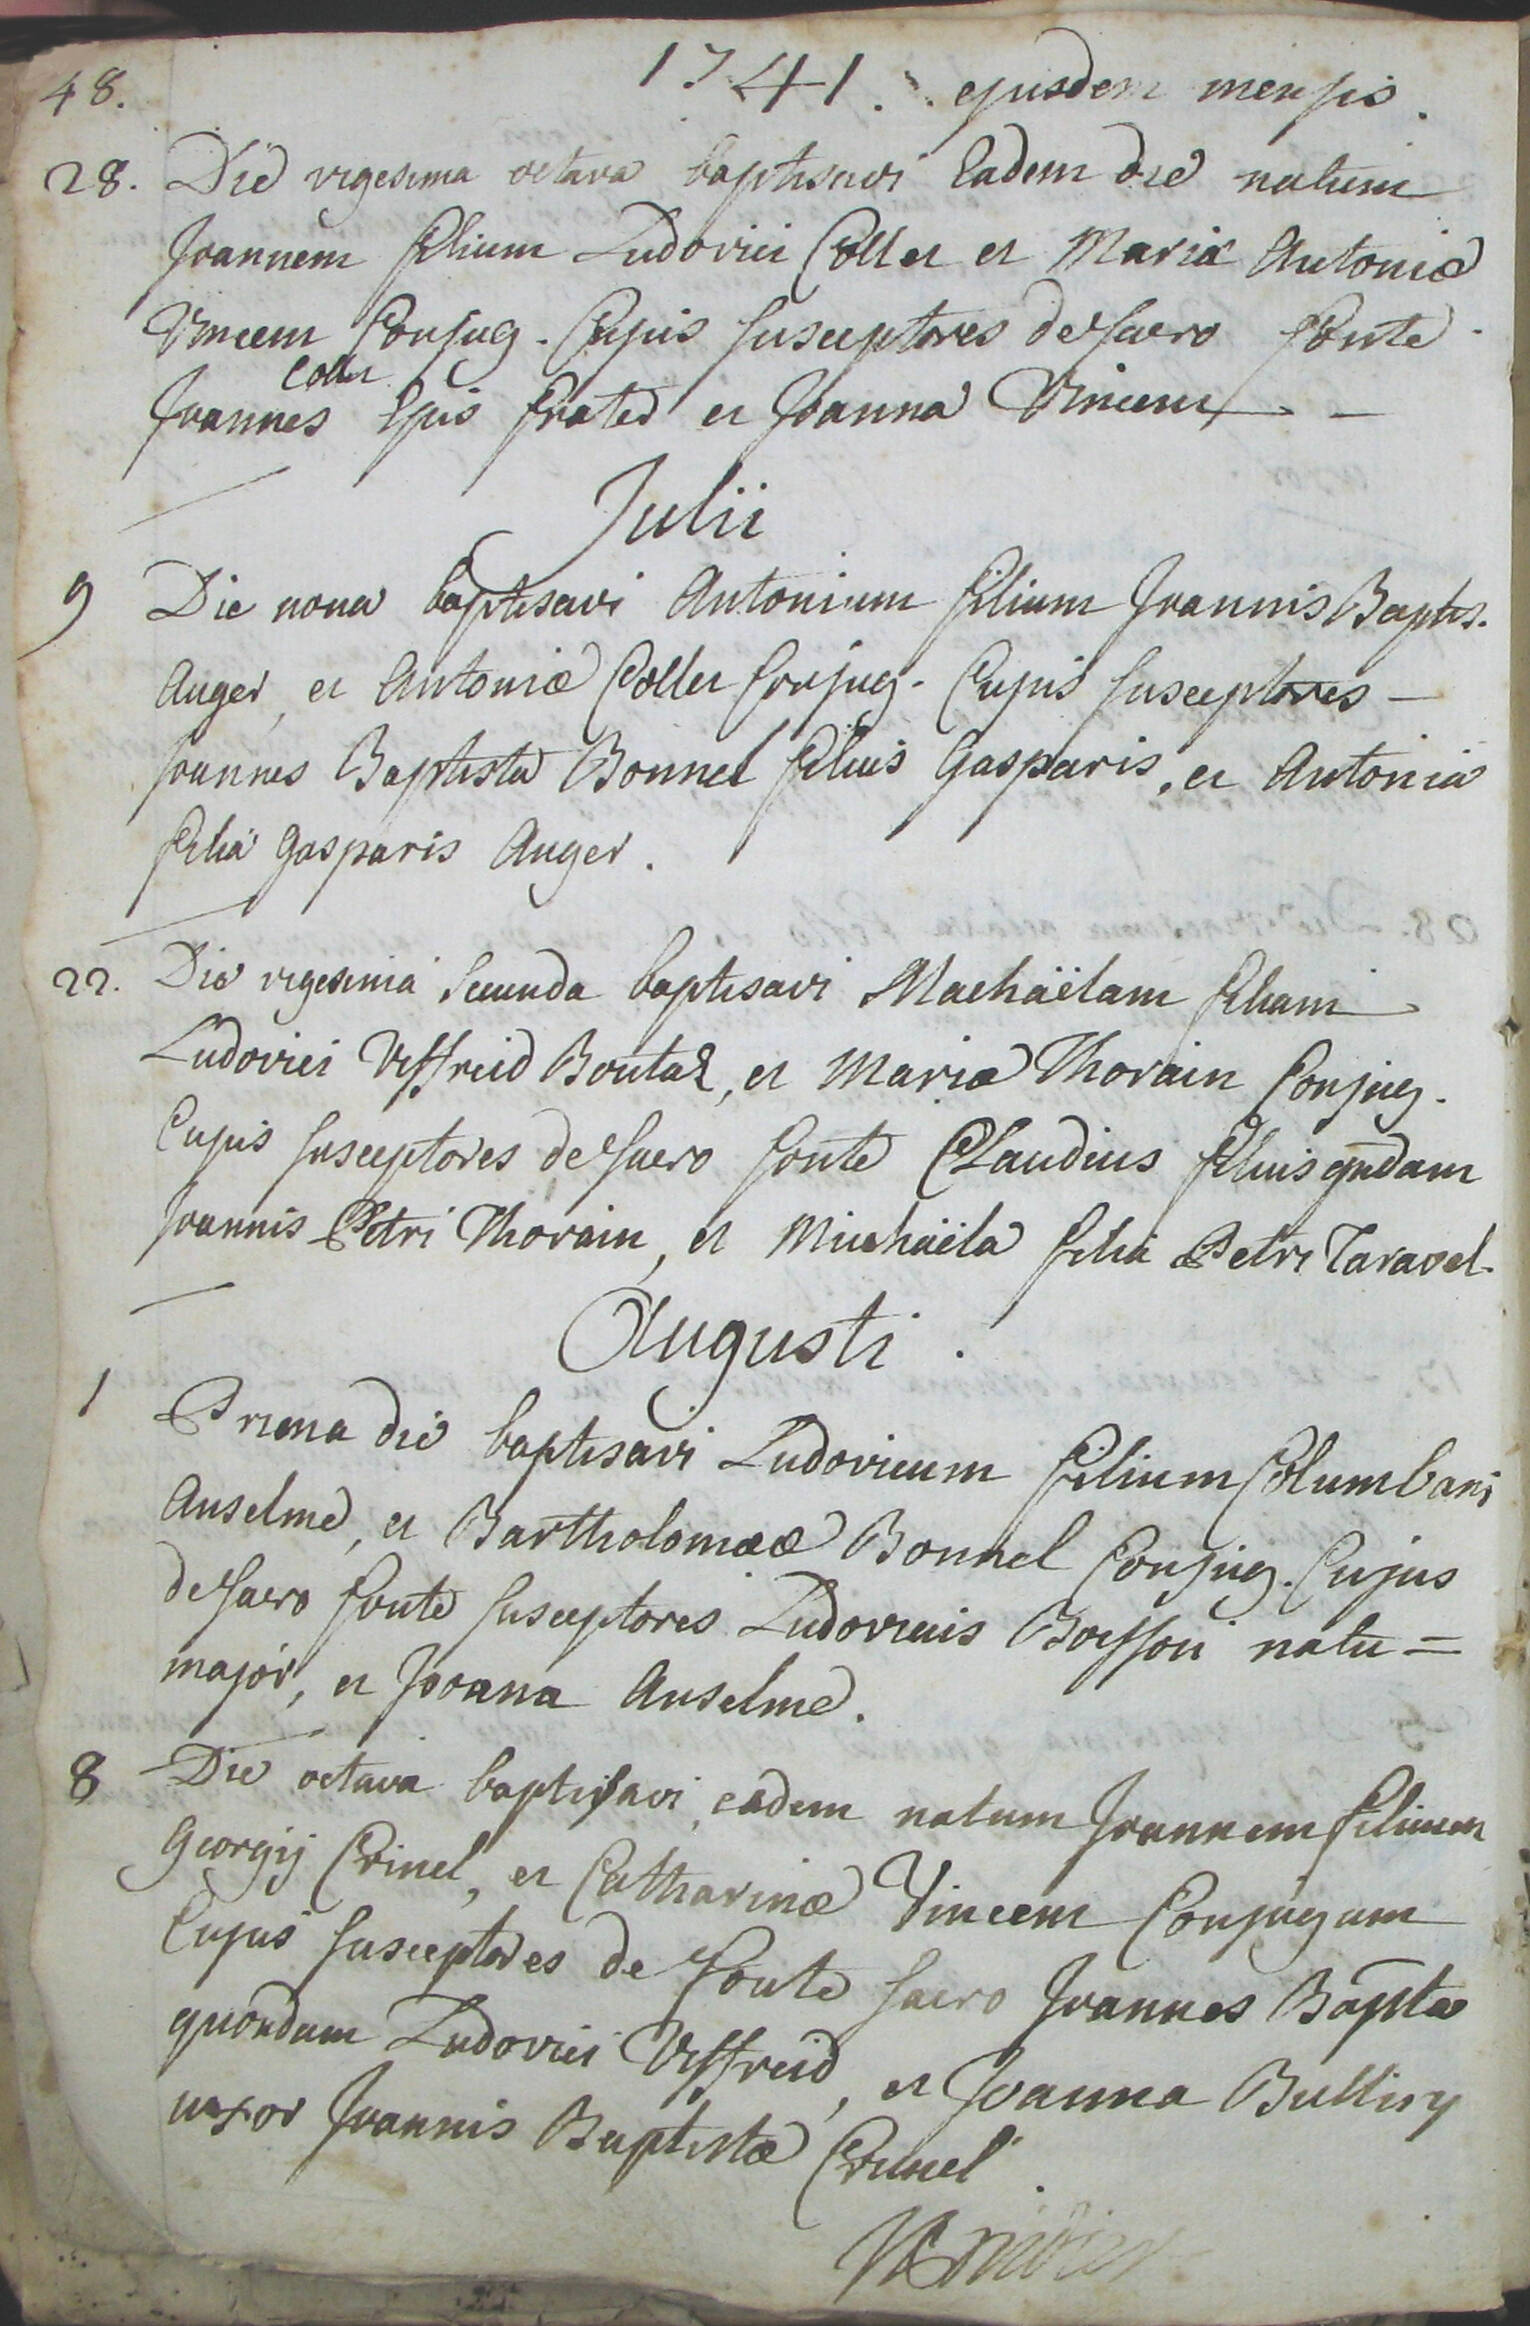 48.
1741. ejusdem mensis.
28. Die vigesima octava baptisavi Eadem die natum
Joannem filium Ludovici Collet et Mariæ Antoniæ
Vincem Conjug. Cujus susceptores de sacro fonte
Collet
Joannes Ejus frater et Joanna Vincem
Julii
9 Die nona baptisavi Antonium filium Joannis Baptis.
Auger, et Antoniæ Collet Conjug. Cujus susceptores
Joannes Baptista Bonnel filius Gasparis, et Antonia
filia Gasparis Auger.
22. Die vigesima secunda baptisavi Machaëlam filiam
Ludovici Uffreid Boutaz, et Mariæ Thorain Conjug.
Cujus susceptores de sacro fonte Claudius filius qndam
Joannis Petri Thorain, et Michaëla filia Petri Taravel.
Augusti.
1 Prima die baptisavi Ludovicum filium Columbani
Anselme, et Bartholomææ Bonnel Conjug. Cujus
de sacro fonte susceptores Ludovicus Boisson natu =
major, et Joana Anselme.
8 Die octava baptisavi, eadem natum Joannem filium
Georgij Crinel, et Catharinæ Vincem Conjugum
Cujus susceptores de fonte sacro Joannes Bapta
quondam Ludovici Uffreid, et Joanna Bulliny
uxor Joannis Baptistæ Crinel.